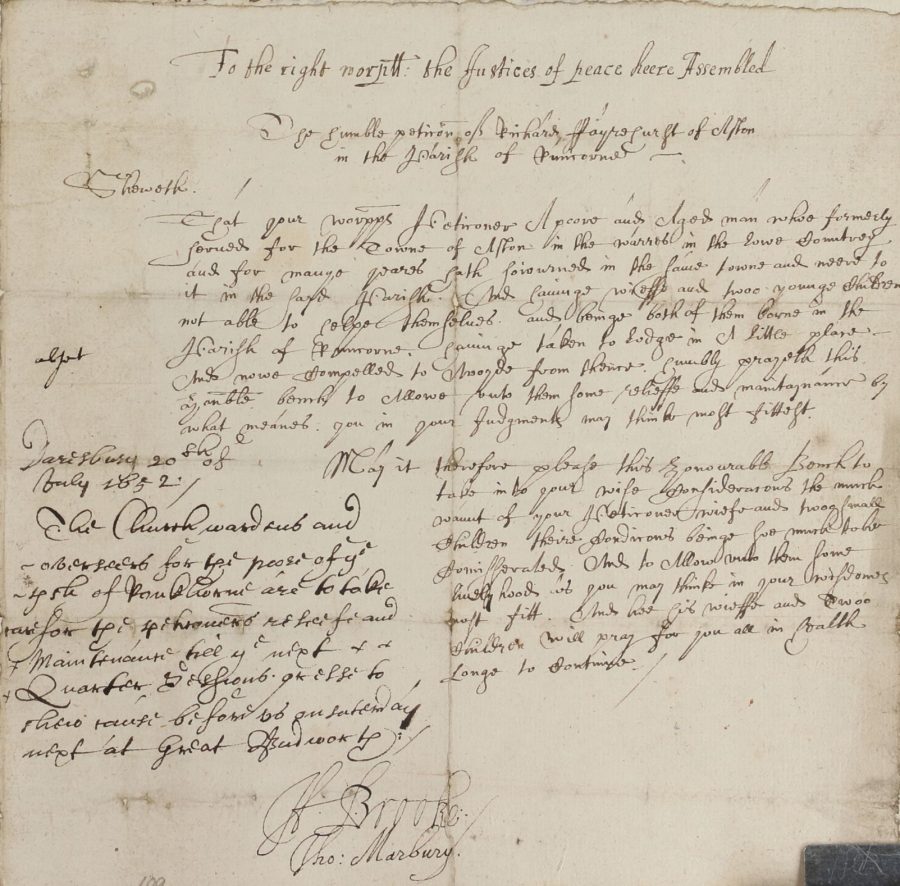 To the right worspll: the Justices of peace heere Assembled
The humble peticon of Richard Ffayrehurst of Aston
in the Parish of Runcorne
Sheweth.
That your worpps Peticoner A poore and Aged man whoe formerly
served for the Towne of Aston in the warres in the Lowe Countrey
and for manye yeares hath soiourned in the same towne and neere to
it in the sayd Parish. And havinge wieffe and twoo younge Children
not able to helpe themselves. and beinge both of them borne in the
Parish of Runcorne. havinge taken to lodge in A little place.
And nowe Compelled to Avoyde from thence. humbly prayeth this
bench to Allowe unto them some relieffe and maintaynance by
what meanes. you in your Judgments may thinke most fittest.
May it therefore please this Honourable Bench to
take into your wise Consideracons the much
want of your Peticoner wiefe and twoo small
Children theire Condicons beinge soe much to be
Comisserated. And to Allow unto them some
livelyhood as you may thinke in your wisdomes
most fitt. And hee his wieffe and Twoo
Children will pray for you all in Health
Longe to Continue.
Daresbury 20th of
July 1652:/
The Churchwardens and
overseers for the poore of ye
pish of Runkhorne are to take
care for the petconers releefe and
Maintenance till ye next
Quarter Sessions. or else to
shew cause before us on saterday
next at Great Budworth:/
H. Brooke:
Tho: Marbury.